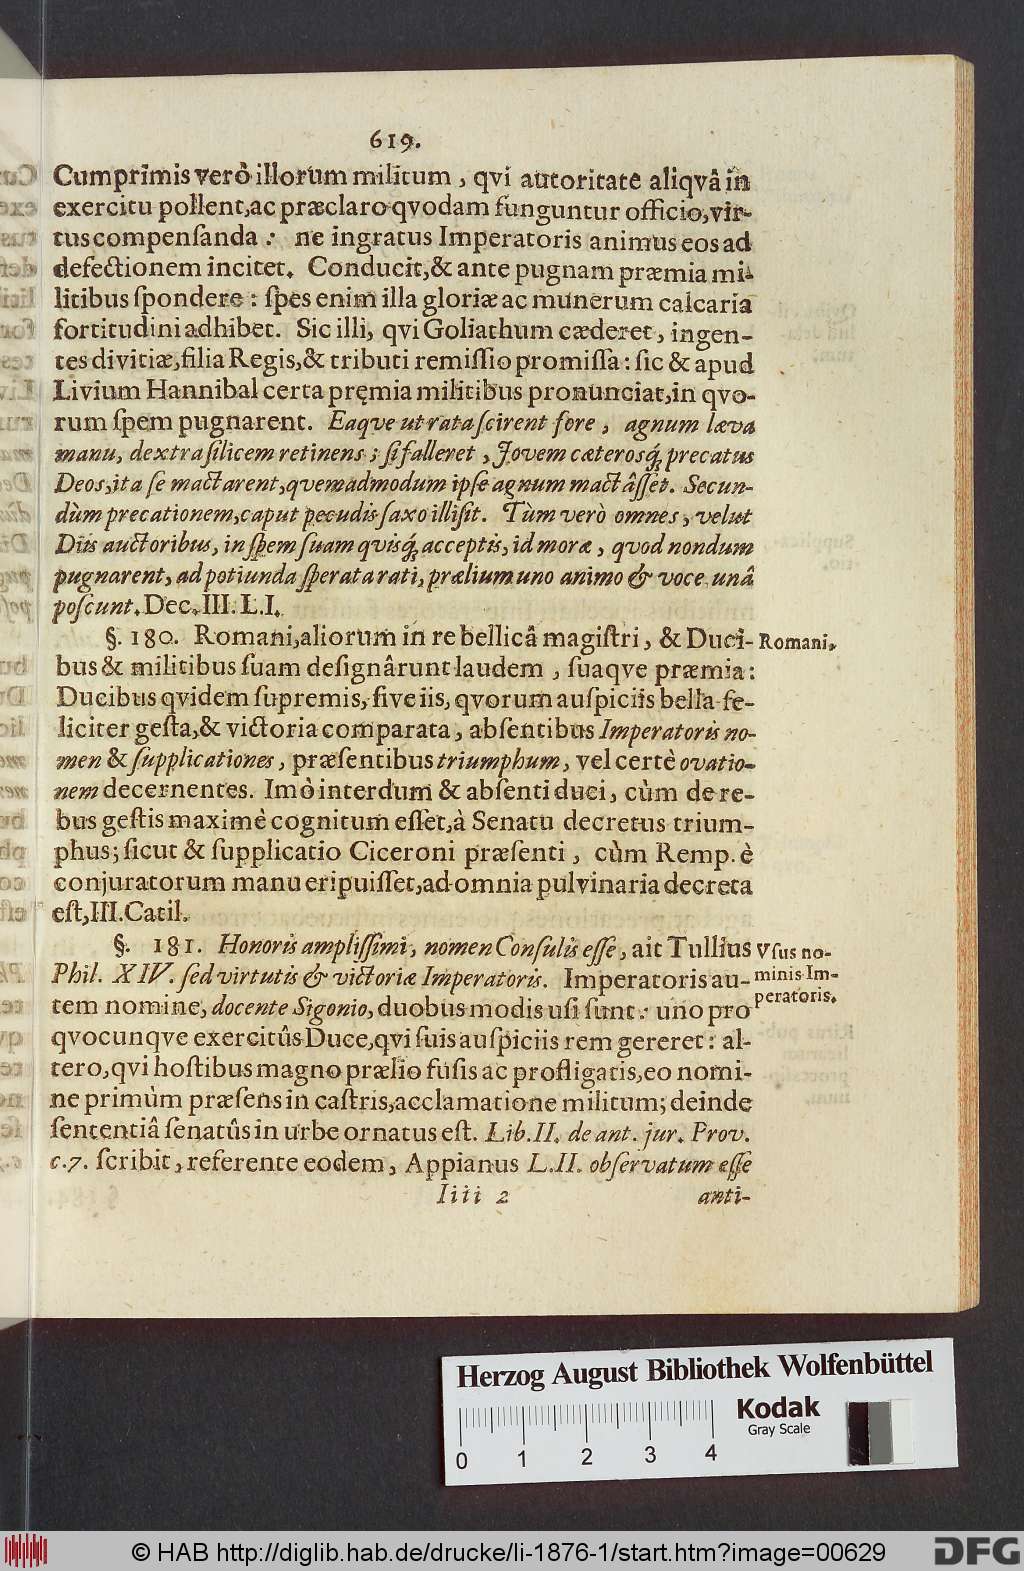 619.
Cumprimis verò illorum militum, qvi autoritate aliqvâ in
exercitu pollent, ac præclaro qvodam funguntur officio, vir-
tus compenſanda: ne ingratus Imperatoris animus eos ad
defectionem incitet. Conducit, & ante pugnam præmia mi-
litibus ſpondere: ſpes enim illa gloriæ ac munerum calcaria
fortitudini adhibet. Sic illi, qvi Goliathum cæderet, ingen-
tes divitiæ, filia Regis, & tributi remiſſio promiſſa: ſic & apud
Livium Hannibal certa pręmia militibus pronunciat, in qvo-
rum ſpem pugnarent. Eaqve ut rata ſcirent fore, agnum læva
manu, dextra ſilicem retinens; ſi falleret, Jovem cæterosq́; precatus
Deos, ita ſe mactarent, qvemadmodum ipſe agnum mactâſſet. Secun-
dùm precationem, caput pecudis ſaxo illiſit. Tùm verò omnes, velut
Diis auctoribus, in ſpem ſuam quisq́; acceptis, id moræ, quod nondum
pugnarent, ad potiunda ſperata rati, prælium uno animo & voce unâ
poſcunt. Dec. III. L. I.
§. 180. Romani, aliorum in re bellicâ magiſtri, & Duci-
Romani.
bus & militibus ſuam deſignârunt laudem, ſuaqve præmia:
Ducibus qvidem ſupremis, ſive iis, qvorum auſpiciis bella fe-
liciter geſta, & victoria comparata, abſentibus Imperatoris no-
men & ſupplicationes, præſentibus triumphum, vel certè ovatio-
nem decernentes. Imò interdum & abſenti duci, cùm de re-
bus geſtis maximè cognitum eſſet, à Senatu decretus trium-
phus; ſicut & ſupplicatio Ciceroni præſenti, cùm Remp. è
conjuratorum manu eripuiſſet, ad omnia pulvinaria decreta
eſt, III. Catil.
§. 181. Honoris ampliſſimi, nomen Conſulis eſſe, ait Tullius
Vſus no-
minis Im-
peratoris.
Phil. XIV. ſed virtutis & victoriæ Imperatoris. Imperatoris au-
tem nomine, docente Sigonio, duobus modis uſi ſunt: uno pro
qvocunqve exercitûs Duce, qvi ſuis auſpiciis rem gereret: al-
tero, qvi hoſtibus magno prælio fuſis ac profligatis, eo nomi-
ne primùm præſens in caſtris, acclamatione militum; deinde
ſententiâ ſenatûs in urbe ornatus eſt. Lib. II. de ant. jur. Prov.
c. 7. ſcribit, referente eodem, Appianus L. II. obſervatum eſſe
Iiii 2
anti-
Herzog August Bibliothek Wolfenbüttel
0 1 2 3 4
Kodak
Gray Scale
© HAB http://diglib.hab.de/drucke/li-1876-1/start.htm?image=00629
DFG